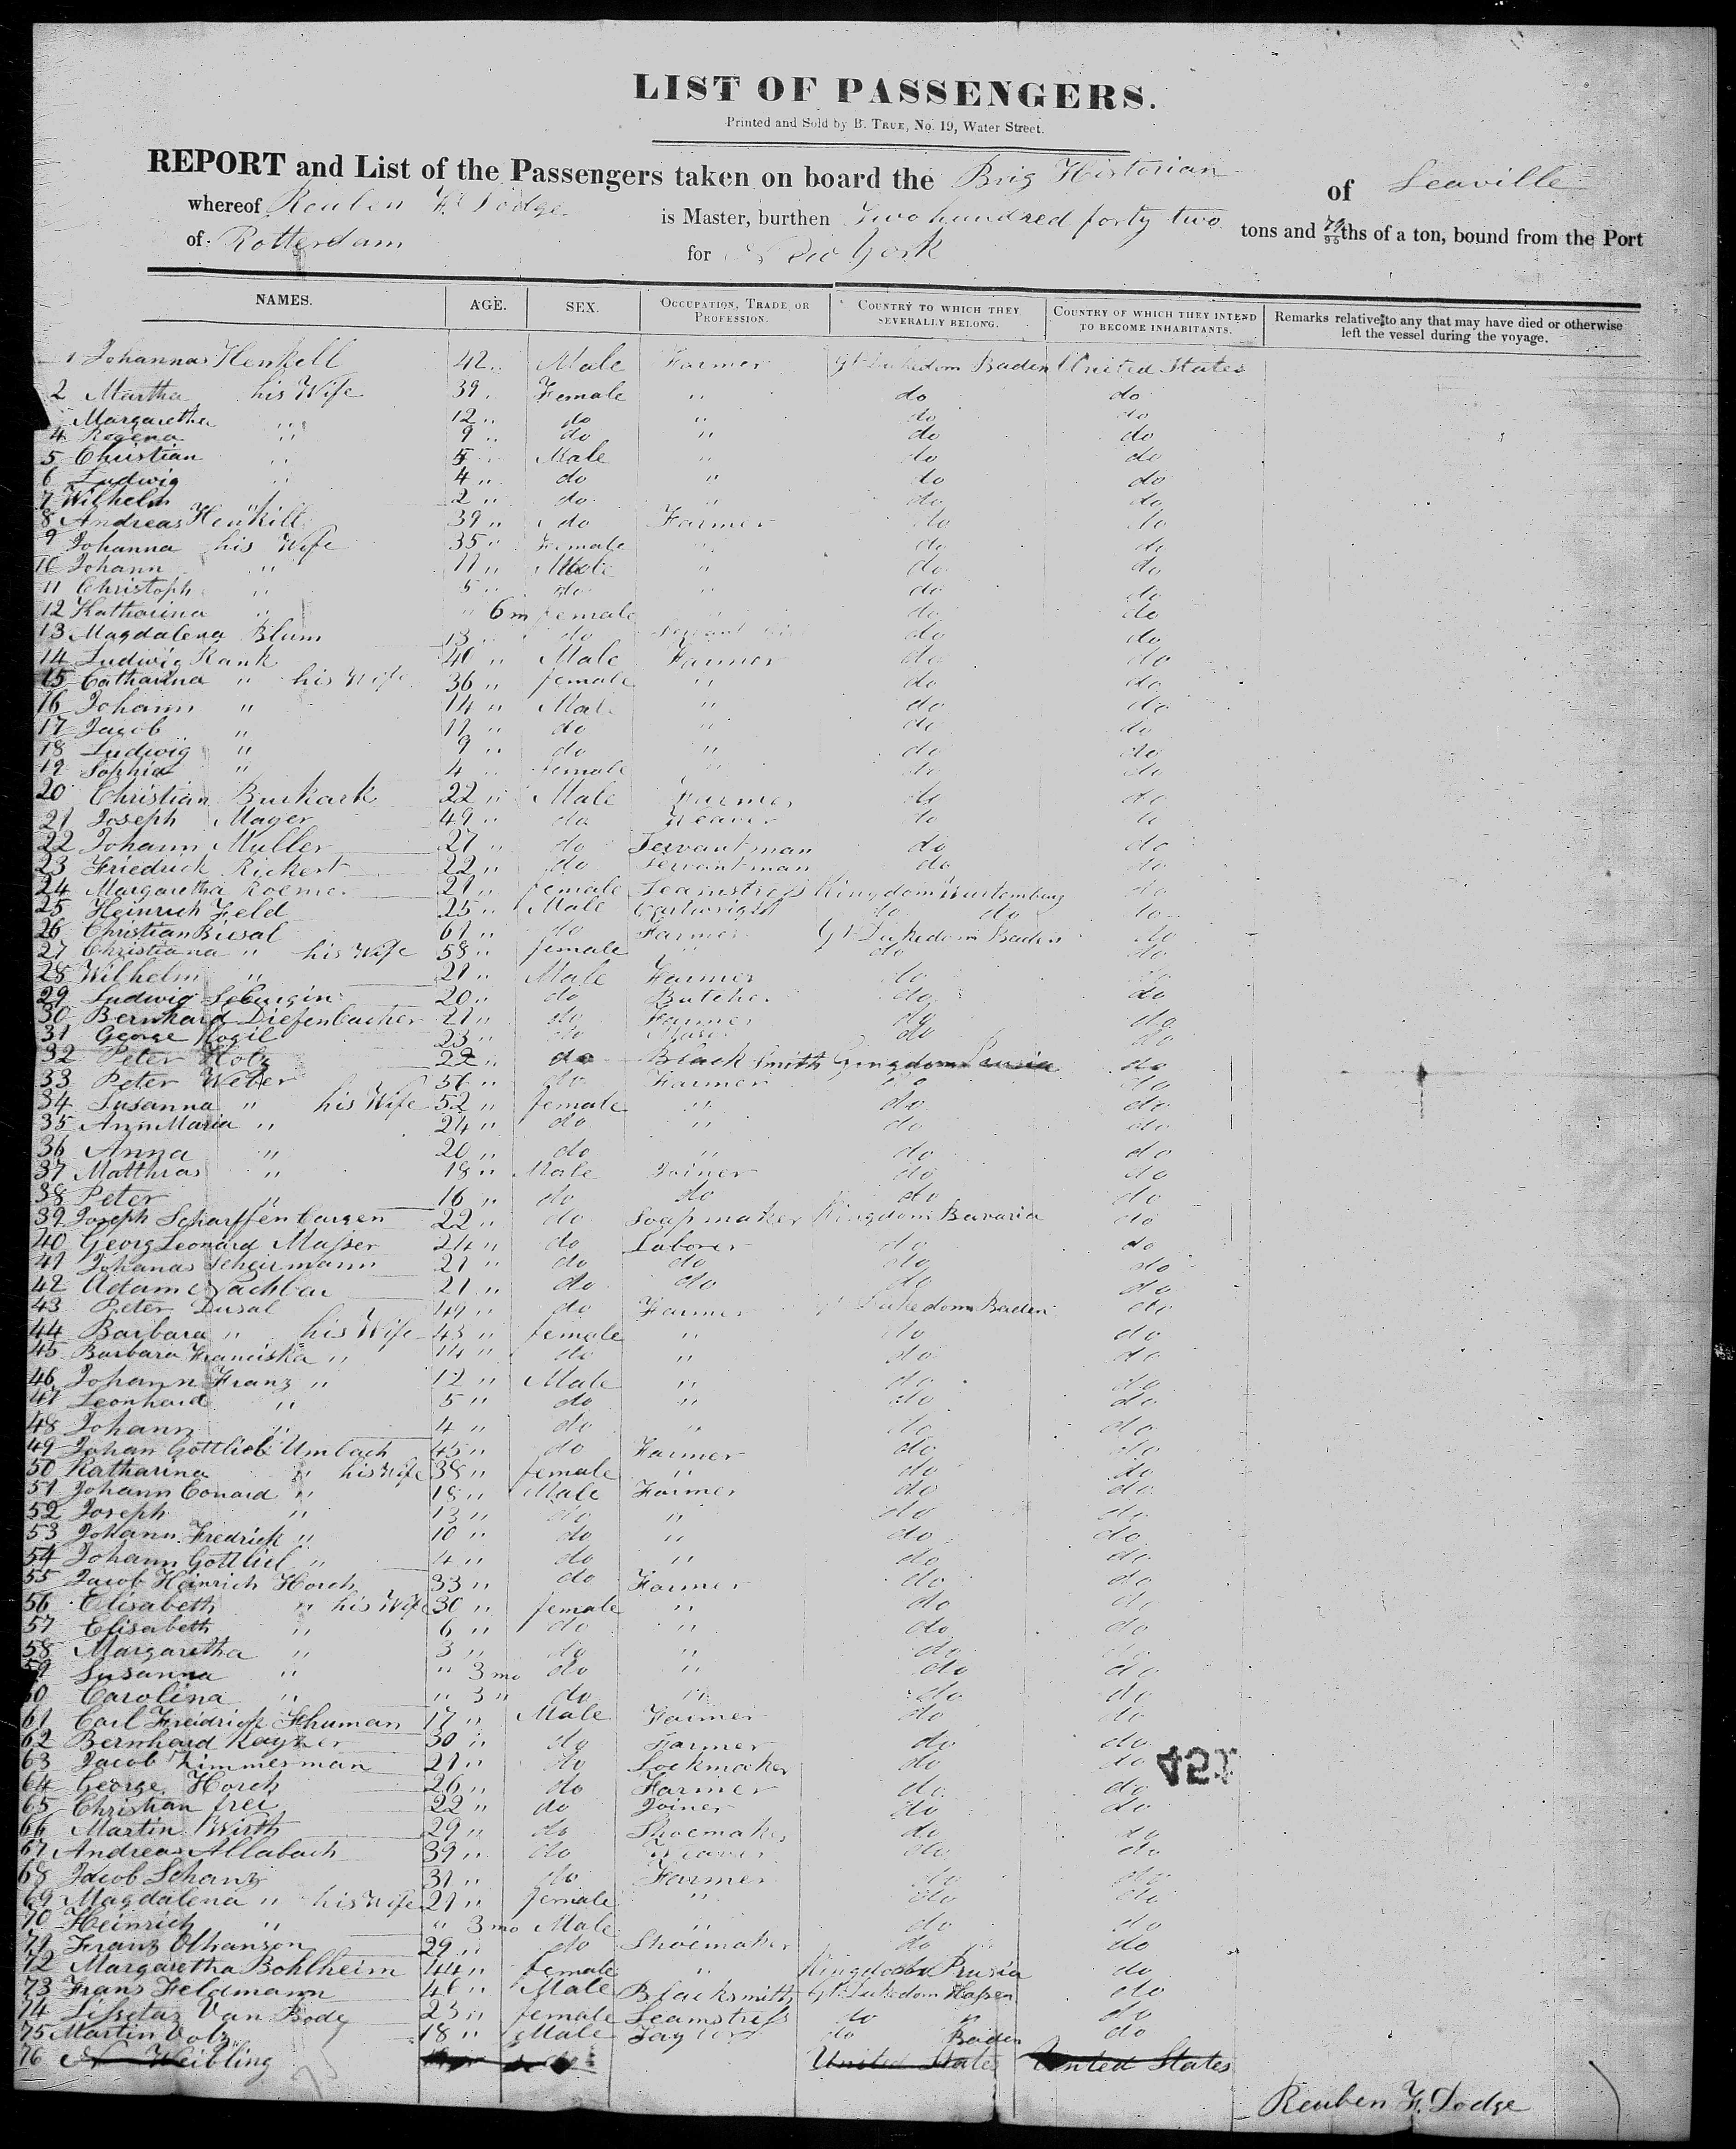 LIST OF PASSENGERS.
Printed and Sold by B. TRUE, No. 19, Water Street.
REPORT and List of the Passengers taken on board the Brig Historian of Seaville
whereof Reuben F. Dodge is Master, burthen Two hundred forty two tons and 79/95ths of a ton, bound from the Port
of Rotterdam for New York
NAMES. AGE. SEX. OCCUPATION, TRADE OR PROFESSION. COUNTRY TO WHICH THEY SEVERALLY BELONG. COUNTRY OF WHICH THEY INTEND TO BECOME INHABITANTS. Remarks relative to any that may have died or otherwise left the vessel during the voyage.
1 Johannas Henkell 42 " Male Farmer Gt Dukedom Baden United States
2 Martha his Wife 39 " Female " do do
Margaretha " 12 " do " do do
4 Regena " 9 " do " do do
5 Christian " 5 " Male " do do
6 Ludwig " 4 " do " do do
7 Wilhelm " 2 " do " do do
8 Andreas Henkill 39 " do Farmer do do
9 Johanna his Wife 35 " Female " do do
10 Johann " 11 " Male " do do
11 Christoph " 5 " do " do do
12 Katharina " " 6 m female " do do
13 Magdalena Blum 13 " do do do
14 Ludwig Rank 40 " Male Farmer do do
15 Catharina " his Wife 36 " female " do do
16 Johann " 14 " Male " do do
17 Jacob " 11 " do " do do
18 Ludwig " 9 " do " do do
19 Sophia " 4 " female " do do
20 Christian Burkark 22 " Male Farmer do do
21 Joseph Mayer 49 " do Weaver do do
22 Johann Muller 27 " do Servant man do do
23 Friedrick Rickert 22 " do Servant man do do
24 Margaretha Roemer 21 " female Seamstress Kingdom Wurtemburg do
25 Heinrich Feld 25 " Male Cartwright do do do
26 Christian Biesal 61 " do Farmer Gt Dukedom Baden do
27 Christiana " his Wife 58 " female " do do
28 Wilhelm " 21 " Male Farmer do do
29 Ludwig 20 " do Butcher do do
30 Bernhard Diefenbacher 21 " do Farmer do do
31 George Kogil 23 " do do do
32 Peter Holz 22 " do Black Smith Gingdom Prusia do
33 Peter Weber 56 " do Farmer do do
34 Susanna " his Wife 52 " female " do do
35 Ann Maria " 24 " do " do do
36 Anna " 20 " do " do do
37 Matthias " 18 " Male Joiner do do
38 Peter " 16 " do do do do
39 Joseph Scharffenbargen 22 " do Soap maker Kingdom Bavaria do
40 Georg Leonard Masser 24 " do Laborer do do
41 Johanas Scheirmann 21 " do do do do
42 Adam Nachbar 21 " do do do do
43 Peter Dusal 49 " do Farmer Gt Dukedom Baden do
44 Barbara " his Wife 43 " female " do do
45 Barbara Franciska " 14 " do " do do
46 Johann Franz " 12 " Male " do do
47 Leonhard " 5 " do " do do
48 Johann " 4 " do " do do
49 Johan Gottlieb Umbach 45 " do Farmer do do
50 Katharina " his Wife 38 " female " do do
51 Johann Conard " 18 " Male Farmer do do
52 Joseph " 13 " do " do do
53 Johann Fredrick " 10 " do " do do
54 Johann Gottlieb " 4 " do " do do
55 Jacob Heinrich Horch 33 " do Farmer do do
56 Elisabeth " his Wife 30 " female " do do
57 Elisabeth " 6 " do " do do
58 Margaretha " 3 " do " do
59 Susanna " " 3 mo do " do do
60 Carolina " " 3 " do " do do
61 Carl Freidrick Shuman 17 " Male Farmer do do
62 Bernhard Kayser 30 " do Farmer do do
63 Jacob Zimmerman 21 " do Lockmaker do do
64 George Horch 26 " do Farmer do do
65 Christian frei 22 " do Joiner do do
66 Martin Wirth 29 " do Shoemaker do do
67 Andreas Allabach 39 " do Weaver do do
68 Jacob Schanz 31 " do Farmer do do
69 Magdalena " his Wife 21 " female " do do
70 Heinrich " " 3 mo Male " do do
71 Franz Othanson 29 " do Shoemaker do do
72 Margaretha Bohlheim 44 " female " Kingdom Prusia do
73 Frans Feldmann 46 " Male Blacksmith Gt Dukedom Hassen do
74 Lisetaz Van Bode 23 " female Seamstress do " do
75 Martin Volz 18 " Male Taylor do Baden do
76 N Weibling United States United States
75
421
Reuben F. Dodge